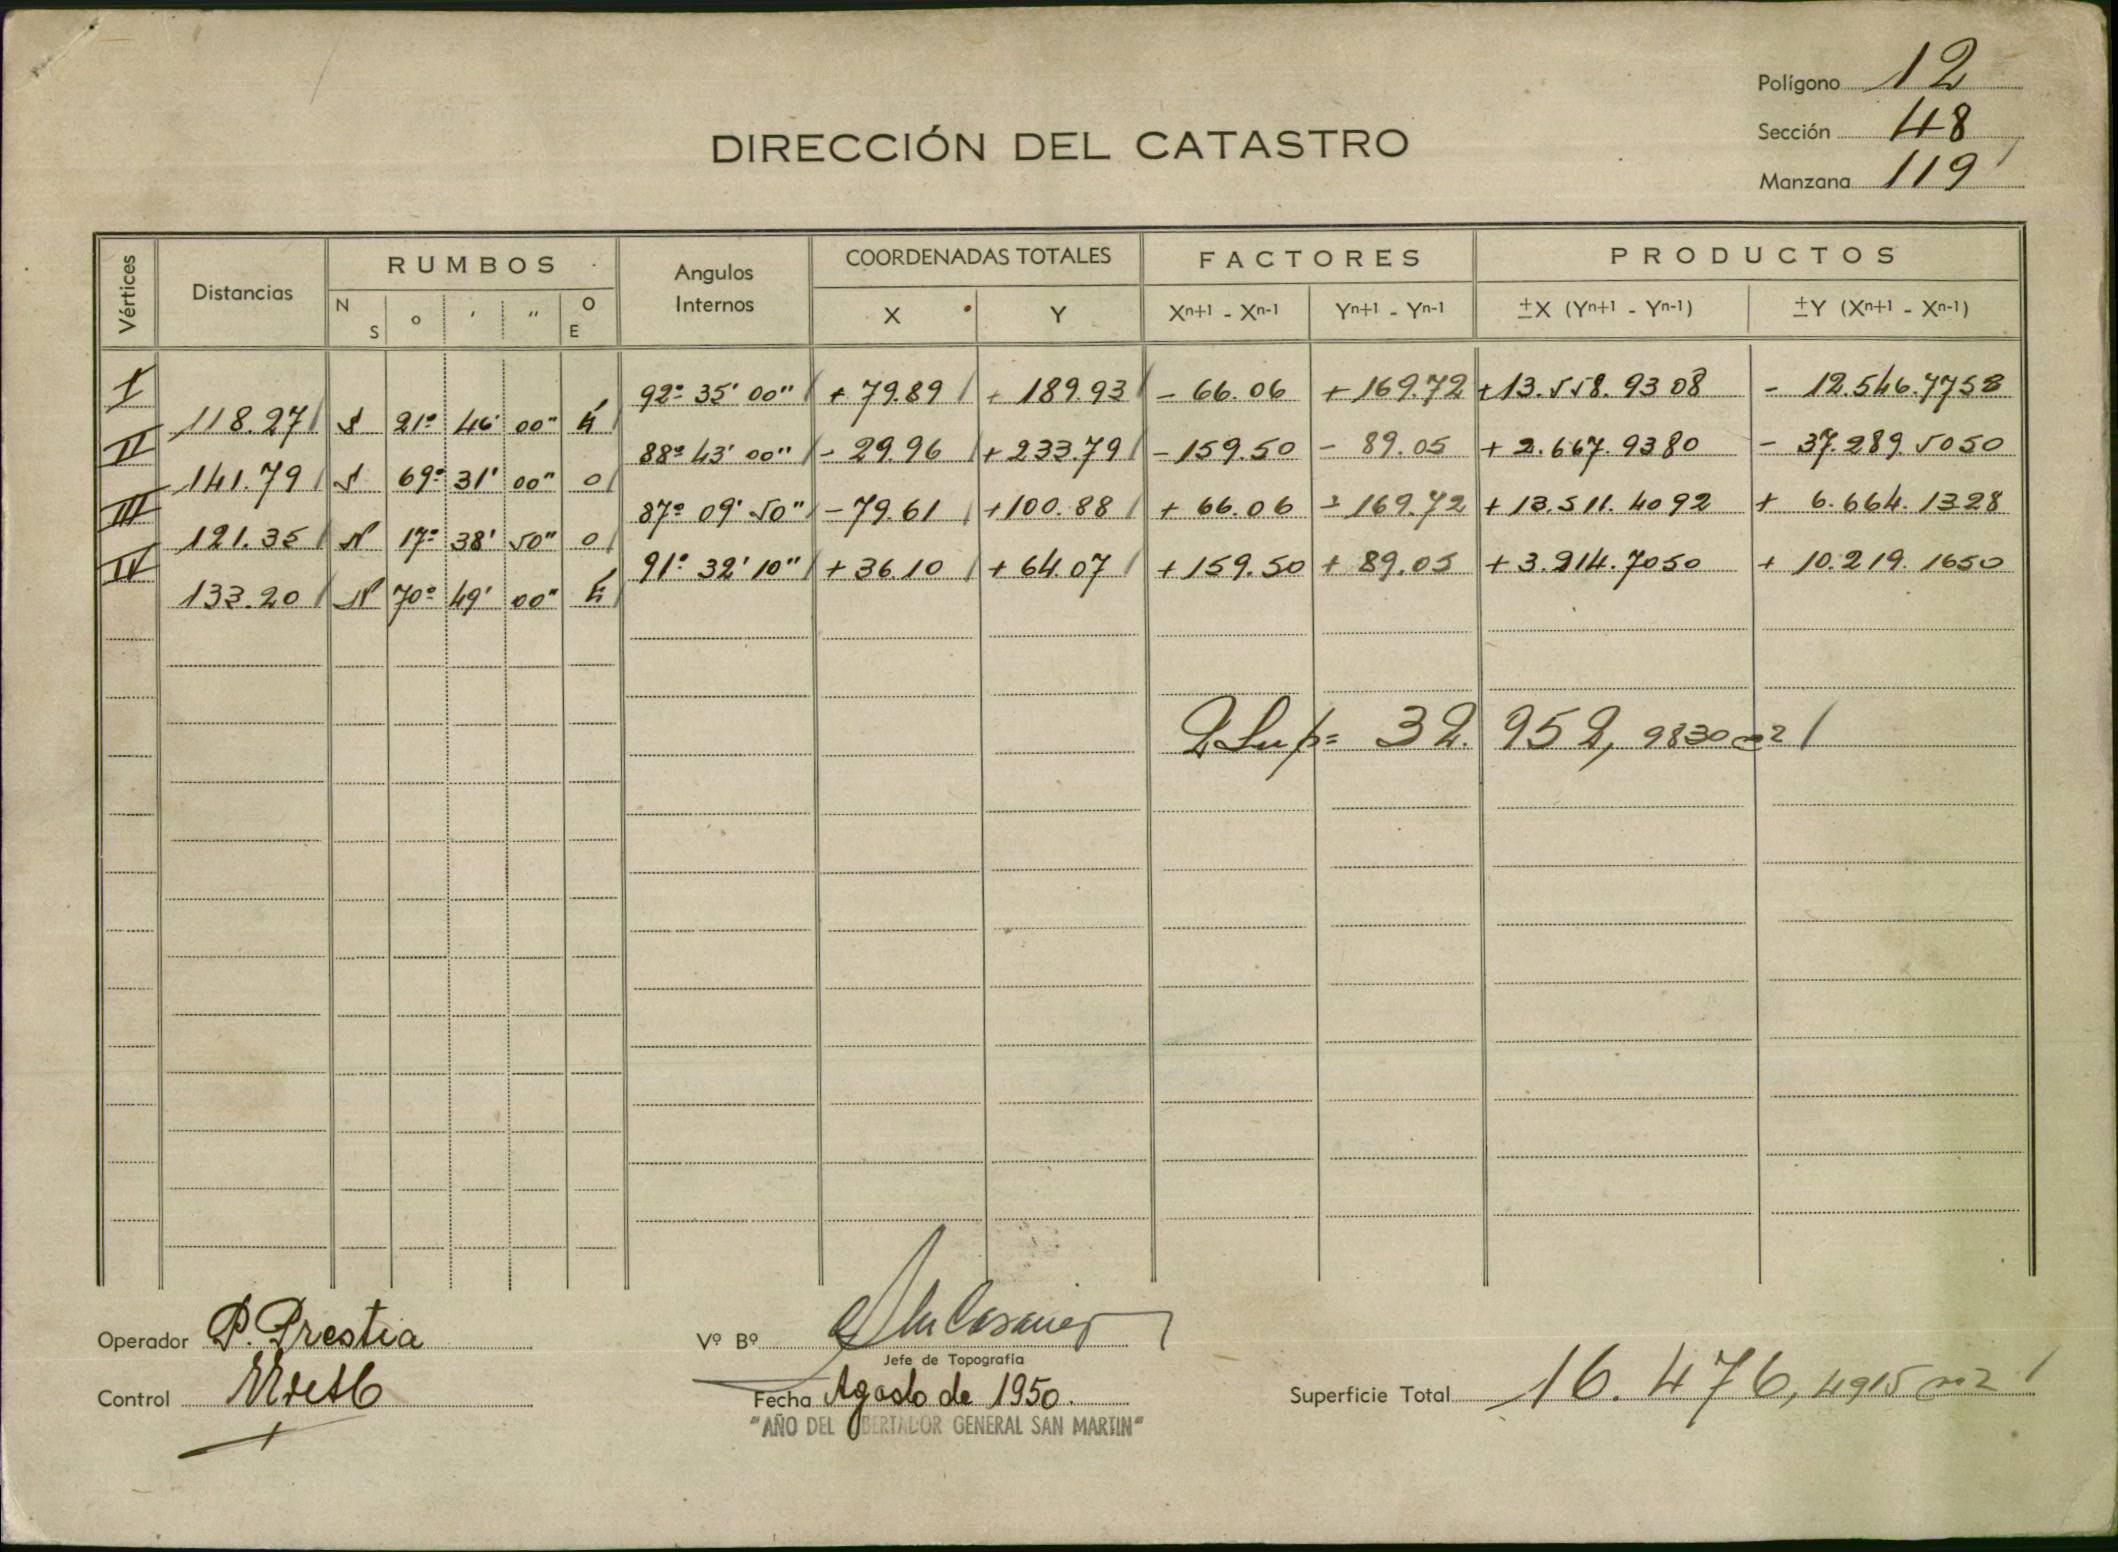 Polígono 12
Sección 48
Manzana 119
DIRECCIÓN DEL CATASTRO
Vértices Distancias RUMBOS Angulos Internos COORDENADAS TOTALES FACTORES PRODUCTOS
N S o ' " O E X Y Xn+1 - Xn-1 Yn+1 - Yn-1 ±X (Yn+1 - Yn-1) ±Y (Xn+1 - Xn-1)
I 92º 35' 00" + 79.89 + 189.93 - 66.06 + 169.72 + 13.558.9308 - 12.546.7758
118.27 S 21º 46' 00" E
II 88º 43' 00" - 29.96 + 233.79 - 159.50 - 89.05 + 2.667.9380 - 37.289.5050
141.79 S 69º 31' 00" O
III 87º 09' 50" - 79.61 + 100.88 + 66.06 - 169.72 + 13.511.4092 + 6.664.1328
121.35 N 17º 38' 50" O
IV 91º 32' 10" + 36.10 + 64.07 + 159.50 + 89.05 + 3.214.7050 + 10.219.1650
133.20 N 70º 49' 00" E
2 Sup = 32.952,9830 m2
Operador P. Prestia
Vº Bº
Jefe de Topografía
Control
Fecha Agosto de 1950.
Superficie Total 16.476,4915 m2
"AÑO DEL LIBERTADOR GENERAL SAN MARTIN"